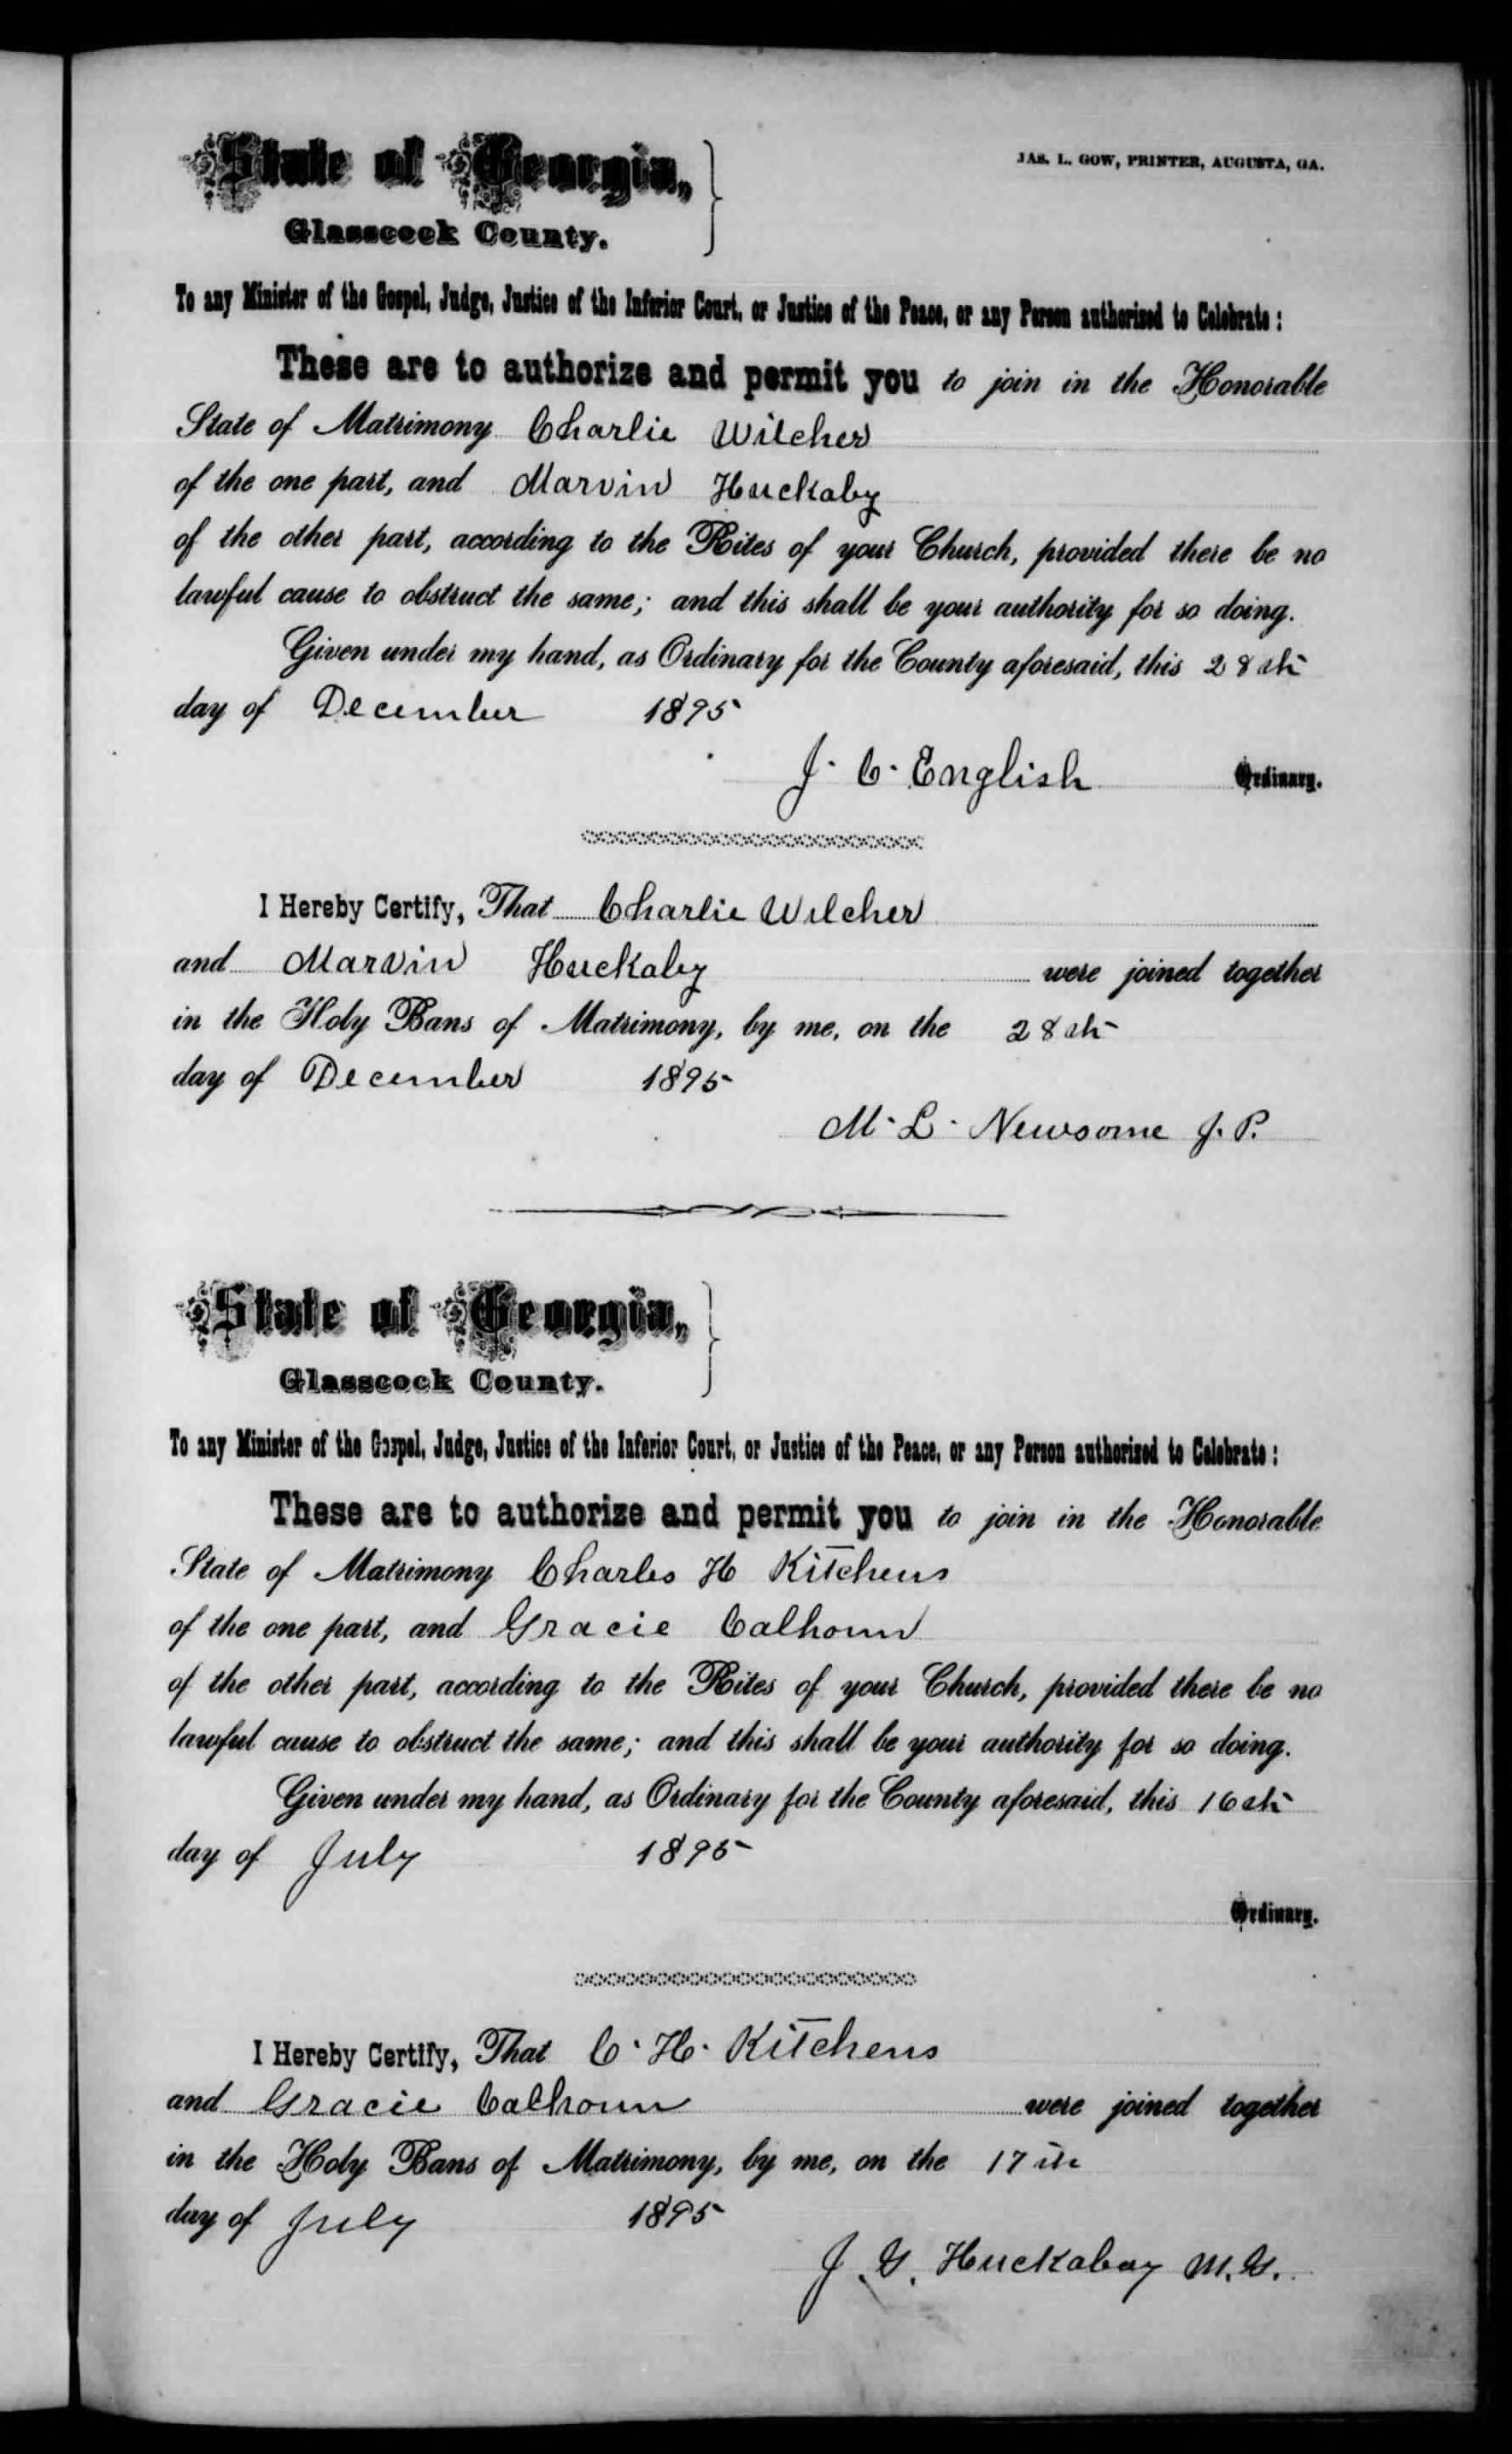 State of Georgia,
JAS. L. GOW, PRINTER, AUGUSTA, GA.
Glasscock County.
To any Minister of the Gospel, Judge, Justice of the Inferior Court, or Justice of the Peace, or any Person authorized to Celebrate:
These are to authorize and permit you to join in the Honorable
State of Matrimony Charlie Wilcher
of the one part, and Marvin Huckaby
of the other part, according to the Rites of your Church, provided there be no
lawful cause to obstruct the same; and this shall be your authority for so doing.
Given under my hand, as Ordinary for the County aforesaid, this 28th
day of December 1895
J. C. English Ordinary.
I Hereby Certify, That Charlie Wilcher
and Marvin Huckaby were joined together
in the Holy Bans of Matrimony, by me, on the 28th
day of December 1895
M. L. Newsome J. P.
State of Georgia,
Glasscock County.
To any Minister of the Gospel, Judge, Justice of the Inferior Court, or Justice of the Peace, or any Person authorized to Celebrate:
These are to authorize and permit you to join in the Honorable
State of Matrimony Charles H Kitchens
of the one part, and Gracie Calhoun
of the other part, according to the Rites of your Church, provided there be no
lawful cause to obstruct the same; and this shall be your authority for so doing.
Given under my hand, as Ordinary for the County aforesaid, this 16th
day of July 1895
Ordinary.
I Hereby Certify, That C. H. Kitchens
and Gracie Calhoun were joined together
in the Holy Bans of Matrimony, by me, on the 17th
day of July 1895
J. G. Huckabay M. G.